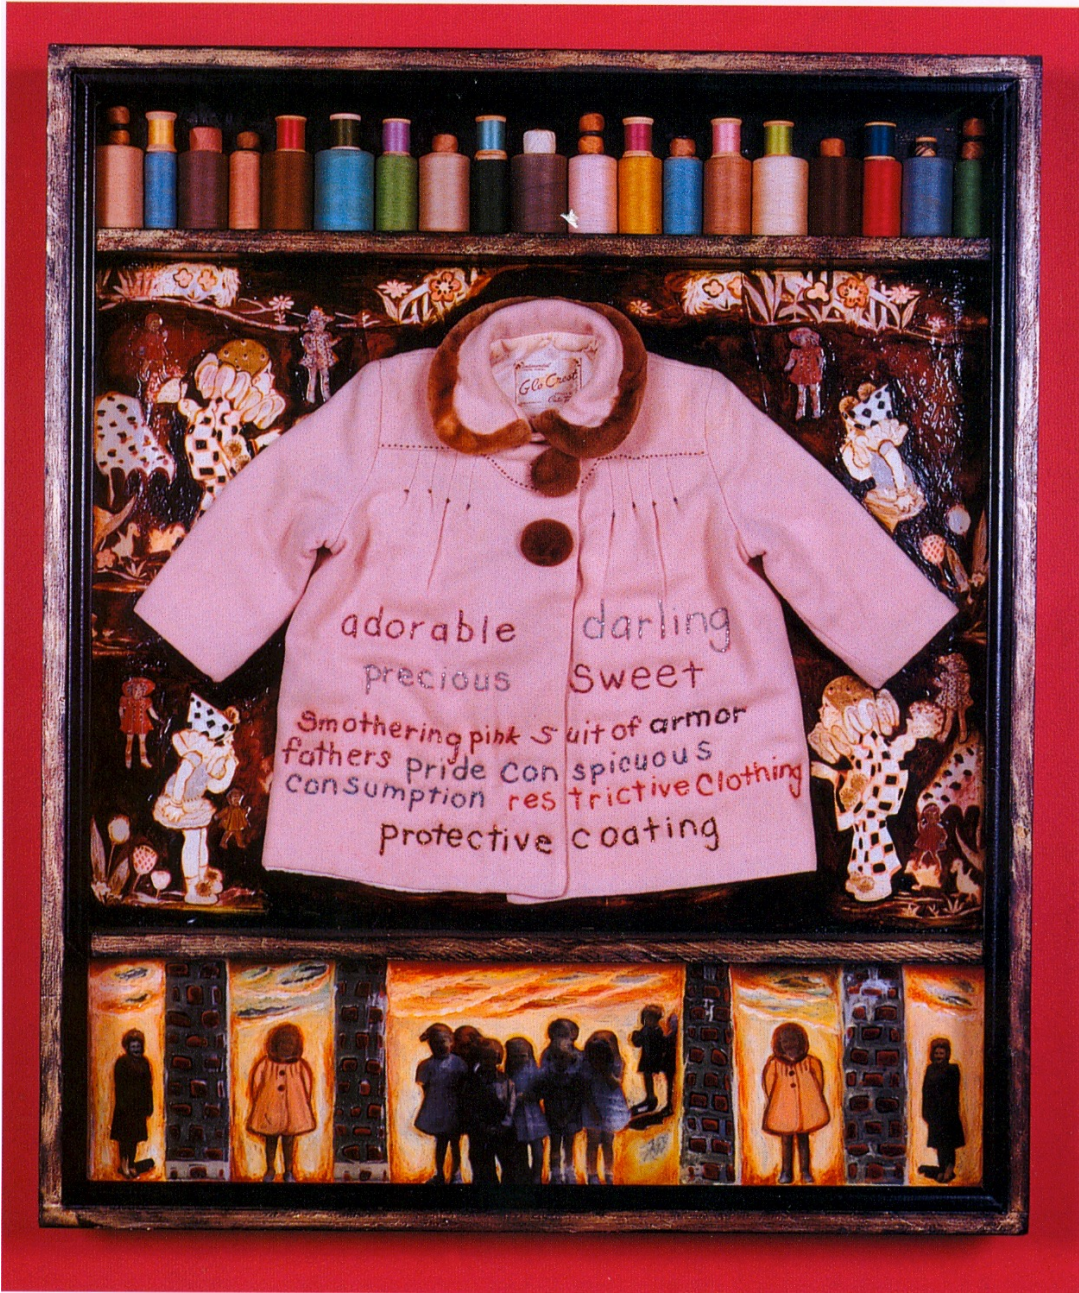 Glo Crest
adorable darling
precious sweet
smothering pink suit of armor
fathers pride conspicuous
consumption restrictive clothing
protective coating